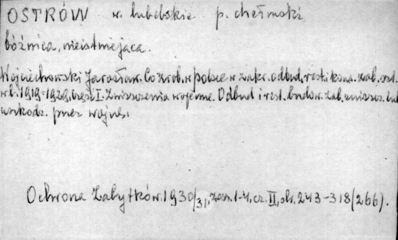 OSTRÓW w. lubelskie p. chełmski
bóżnica, nieistniejąca.
Wojciechowski Jarosław. Co zrob. w Polsce w zakr. odbud. i restikona. zab. szt.
w l. 1919-1929, część I. Zniszczenia wojenne. Odbud i rest. budow. zab. zniszcz. lub
uszkodz. przez wojnę.
Ochrona Zabytków. 1930/31, zesz. 1-4, cz. II, str. 243-318 (266).